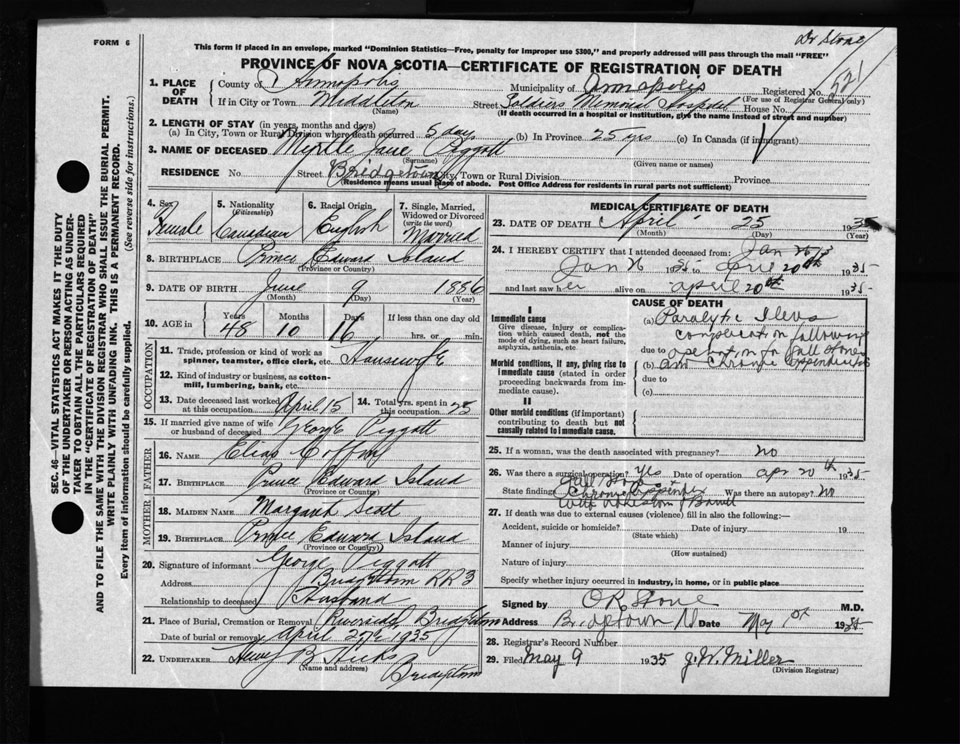 Dr Stone
FORM 6
This form if placed in an envelope, marked "Dominion Statistics—Free, penalty for improper use $300," and properly addressed will pass through the mail "FREE"
PROVINCE OF NOVA SCOTIA—CERTIFICATE OF REGISTRATION OF DEATH
1. PLACE OF DEATH
County of Annapolis Municipality of Annapolis Registered No. 521
(For use of Registrar General only)
If in City or Town Middleton Street Soldiers Memorial Hospital House No.
(Name) (If death occurred in a hospital or institution, give the name instead of street and number)
2. LENGTH OF STAY (in years, months and days)
(a) In City, Town or Rural Division where death occurred 5 days (b) In Province 25 yrs (c) In Canada (if immigrant)
3. NAME OF DECEASED Myrtle Jane Piggott
(Surname) (Given name or names)
RESIDENCE No. Street Bridgetown City, Town or Rural Division Province
(Residence means usual place of abode. Post Office Address for residents in rural parts not sufficient)
4. Sex Female
5. Nationality (Citizenship) Canadian
6. Racial Origin English
7. Single, Married, Widowed or Divorced (write the word) Married
8. BIRTHPLACE Prince Edward Island
(Province or Country)
9. DATE OF BIRTH June 9 1886
(Month) (Day) (Year)
10. AGE in Years 48 Months 10 Days 16 If less than one day old
hrs. or min.
OCCUPATION
11. Trade, profession or kind of work as spinner, teamster, office clerk, etc. Housewife
12. Kind of industry or business, as cotton-mill, lumbering, bank, etc.
13. Date deceased last worked at this occupation April 15
14. Total yrs. spent in this occupation 25
15. If married give name of wife or husband of deceased George Piggott
FATHER
16. NAME Elias Coffin
17. BIRTHPLACE Prince Edward Island
(Province or Country)
MOTHER
18. MAIDEN NAME Margaret Scott
19. BIRTHPLACE Prince Edward Island
(Province or Country)
20. Signature of informant George Piggott
Address Bridgetown RR3
Relationship to deceased Husband
21. Place of Burial, Cremation or Removal Riverside Bridgetown
Date of burial or removal April 27th 1935
22. UNDERTAKER B Hicks
(Name and address)
Bridgetown
MEDICAL CERTIFICATE OF DEATH
23. DATE OF DEATH April 25 1935
(Month) (Day) (Year)
24. I HEREBY CERTIFY that I attended deceased from:
Jan 26 to April 20th 1935
and last saw her alive on april 20th 1935
CAUSE OF DEATH
I
Immediate cause
Give disease, injury or complication which caused death, not the mode of dying, such as heart failure, asphyxia, asthenia, etc.
Morbid conditions, if any, giving rise to immediate cause (stated in order proceeding backwards from immediate cause).
II
Other morbid conditions (if important) contributing to death but not causally related to immediate cause.
(a) Paralytic Ileus
complication following
due to operation for Gall stones
(b) and Chronic appendicitis
due to
(c)
25. If a woman, was the death associated with pregnancy? no
26. Was there a surgical operation? yes Date of operation apr 20th 1935
Gall Stones
State finding Chronic appendix Was there an autopsy? no
with adhesions Bowel
27. If death was due to external causes (violence) fill in also the following:—
Accident, suicide or homicide? Date of injury 19
(State which)
Manner of injury
(How sustained)
Nature of injury
Specify whether injury occurred in industry, in home, or in public place
Signed by OR Stone M.D.
Address Bridgetown Date May 1st 1935
28. Registrar's Record Number
29. Filed May 9 1935 J. W. Miller
(Division Registrar)
SEC. 46—VITAL STATISTICS ACT MAKES IT THE DUTY
OF THE UNDERTAKER OR PERSON ACTING AS UNDER-
TAKER TO OBTAIN ALL THE PARTICULARS REQUIRED
IN THE "CERTIFICATE OF REGISTRATION OF DEATH"
AND TO FILE THE SAME WITH THE DIVISION REGISTRAR WHO SHALL ISSUE THE BURIAL PERMIT.
WRITE PLAINLY WITH UNFADING INK. THIS IS A PERMANENT RECORD.
Every item of information should be carefully supplied. (See reverse side for instructions.)